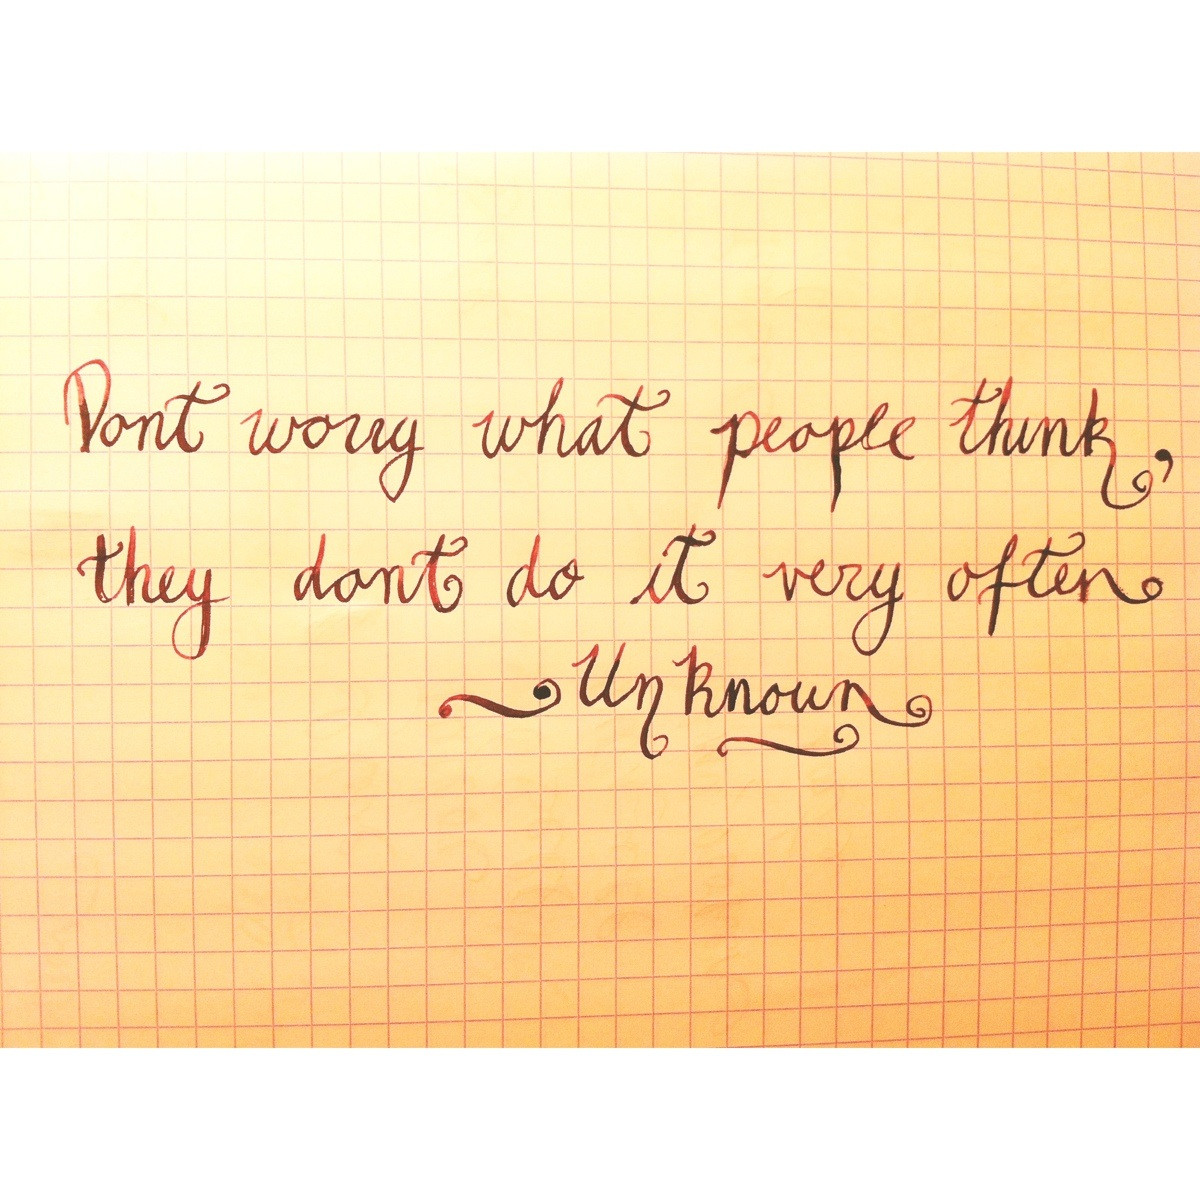 Dont worry what people think,
they dont do it very often
~Unknown